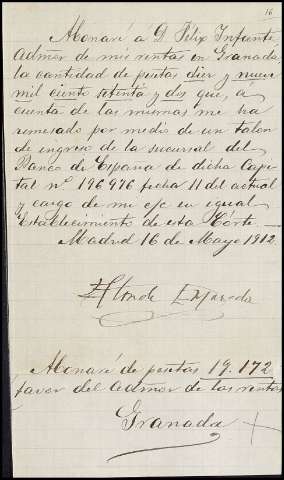 16
Abonaré a D. Félix Infante
Admõr de mis rentas en Granada
la cantidad de pesetas diez y nueve
mil ciento setenta y dos que, a
cuenta de las mismas me ha
remesado por medio de un talon
de ingreso de la sucursal del
Banco de España de dicha Capi-
tal nº 196976 fecha 11 del actual
y cargo de mi c/c en igual
Establecimiento de esta Córte.—
Madrid 16 de Mayo 1912
El Conde
Abonaré de pesetas 19.172
favor del Admõr de las rentas
Granada